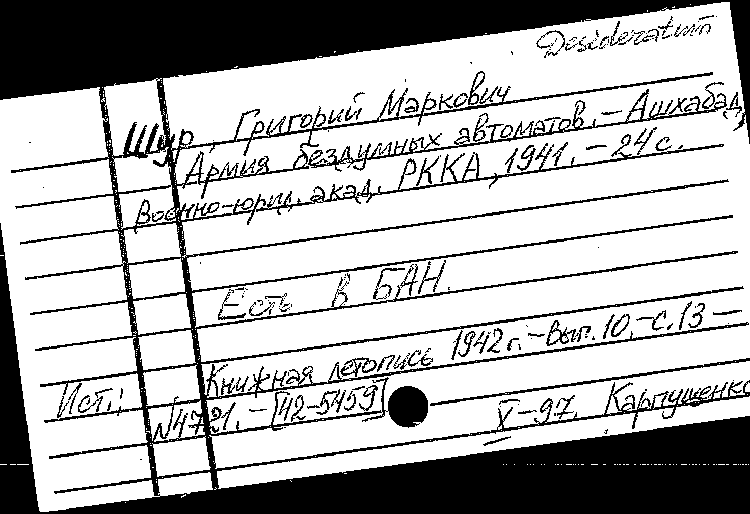 Desideratum
Шур, Григорий Маркович
Армия бездумных автоматов. – Ашхабад,
Военно-юрид. акад. РККА, 1941. – 24 с.
Есть в БАН.
Ист.: Книжная летопись 1942 г. – Вып. 10. – с. 13 –
№4721. – [42-5459]
X-97. Карпушенко